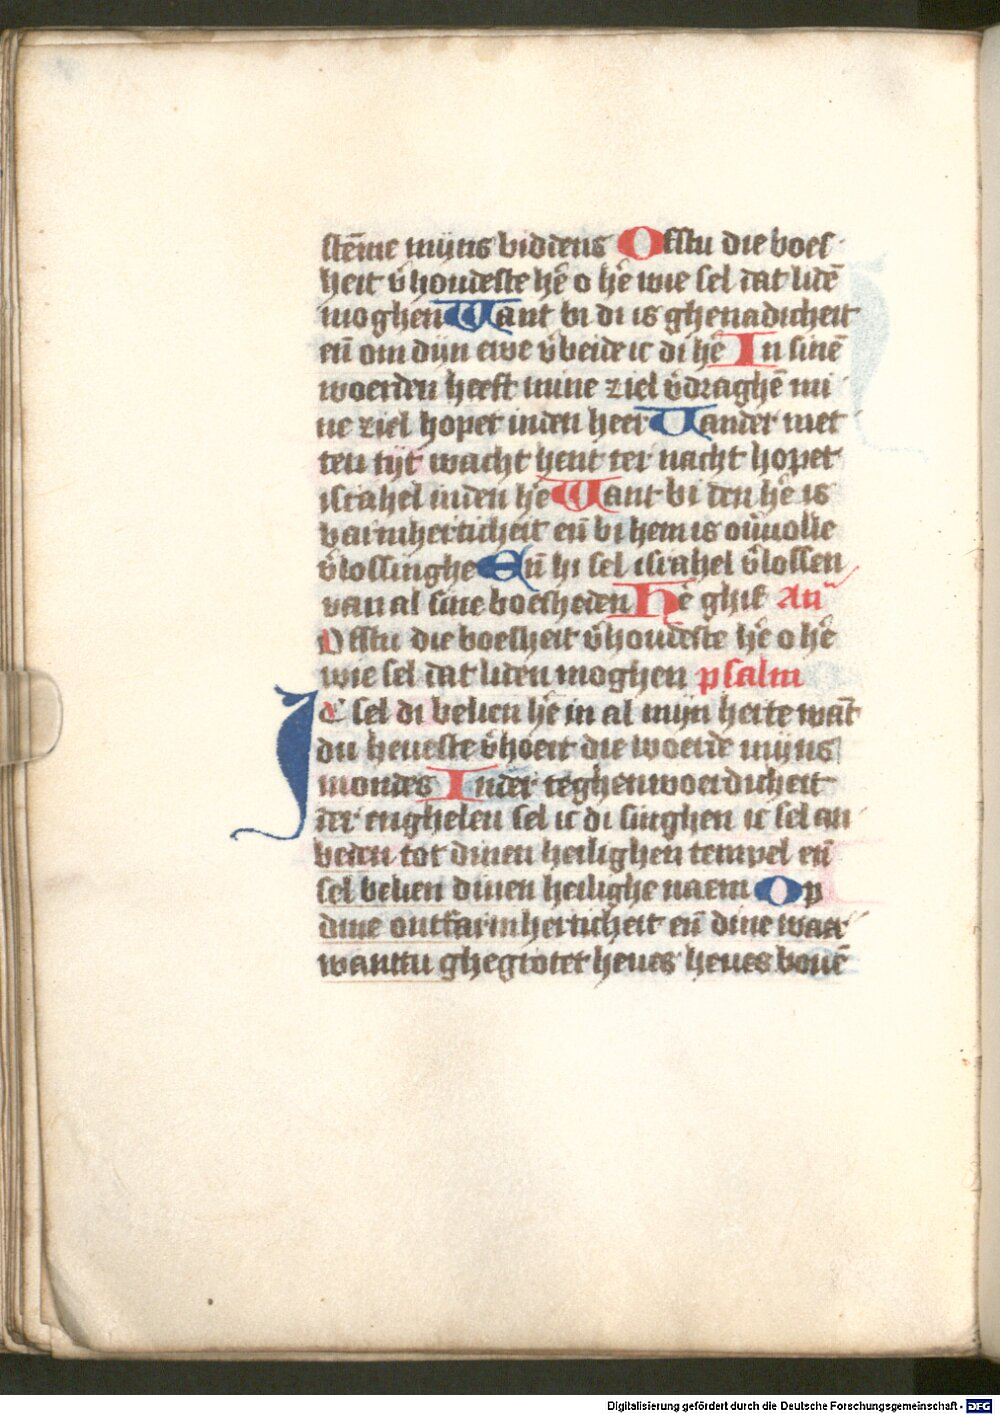 stēme mijns biddens Ofstu die boes
heit v̄houdeste hē o hē wie sel dat lidē
moghen Want bi di is ghenadicheit
en̄ om dijn ewe v̄beide ic di hē In sinē
woerden heeft mine ziel v̄draghē mi
ne ziel hopet inden heer Vander met
ten tijt wacht hent ter nacht hopet
israhel inden hē Want bi den hē is
barmherticheit en̄ bi hem is ov̄uolle
v̄lossinghe En̄ hi sel israhel v̄lossen
van al sine boesheden Hē ghif An̄
Ofstu die boesheit v̄houdeste hē o hē
wie sel dat liden moghen psalm
Ic sel di belien hē in al mijn herte wāt
du heueste v̄hoert die woerde mijns
mondes Inder teghenwoerdicheit
der enghelen sel ic di singhen ic sel an
beden tot dinen heilighen tempel en̄
sel belien dinen heilighe naem Op
dine ontfarmherticheit en̄ dine waer
wanttu ghegrotet heues heues bouē
Digitalisierung gefördert durch die Deutsche Forschungsgemeinschaft - DFG